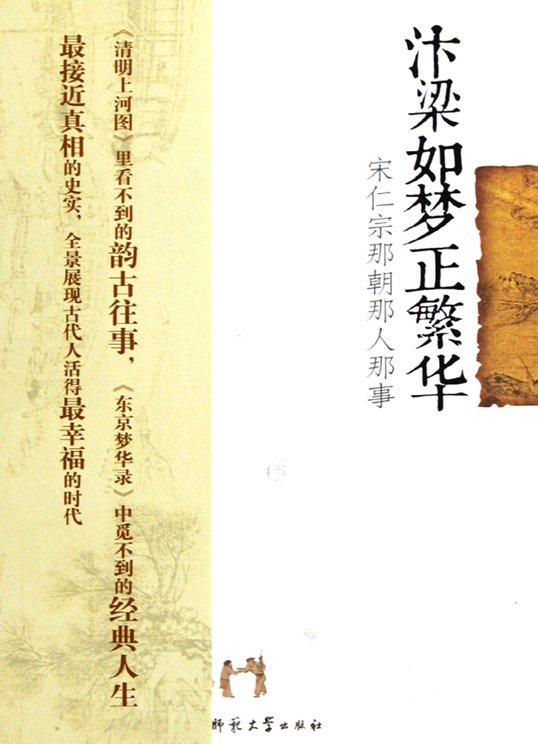 汴梁如梦正繁华
宋仁宗那朝那人那事
《清明上河图》里看不到的韵古往事，《东京梦华录》中觅不到的经典人生
最接近真相的史实，全景展现古代人活得最幸福的时代
师范大学出版社